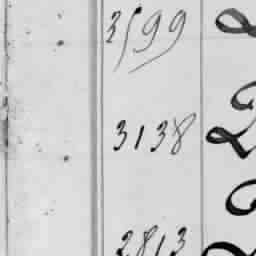 3599
3138
2813